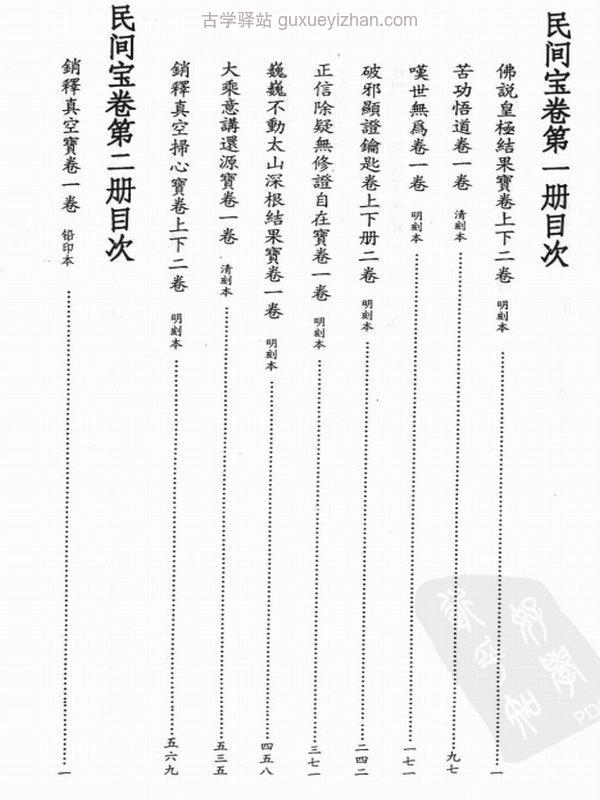 古学驿站 guxueyizhan.com
民间宝卷第一册目次
佛説皇極結果寶卷上下二卷 明刻本 一
苦功悟道卷一卷 清刻本 九七
嘆世無爲卷一卷 明刻本 一七一
破邪顯證鑰匙卷上下册二卷 明刻本 二四二
正信除疑無修證自在寶卷一卷 明刻本 三七一
巍巍不動太山深根結果寶卷一卷 明刻本 四五八
大乘意講還源寶卷一卷 清刻本 五三五
銷釋真空掃心寶卷上下二卷 明刻本 五六九
民间宝卷第二册目次
銷釋真空寶卷一卷 铅印本 一
PD